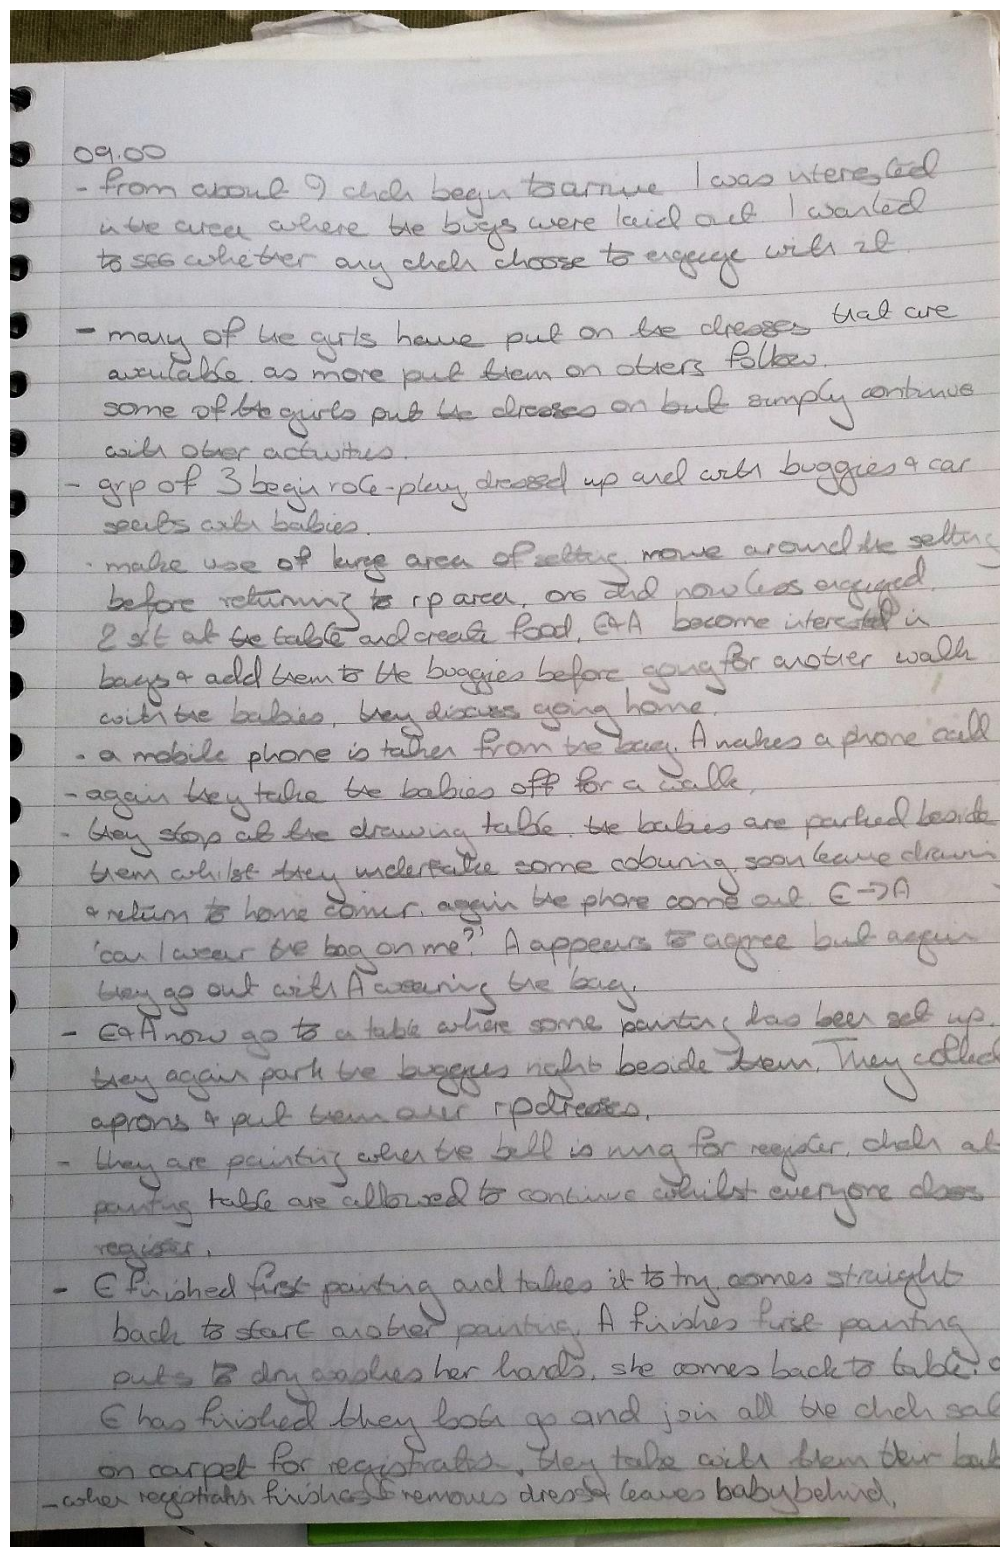 09.00
- from about 9 chdn begin to arrive I was interested
in the area where the bugs were laid out I wanted
to see whether any chdn choose to engage with it.
- many of the girls have put on the dresses that are
available. as more put them on others follow.
some of the girls put the dresses on but simply continue
with other activities.
- grp of 3 begin role-play, dressed up and with buggies & car
seats with babies.
- make use of large area of setting move around the setting
before returning to rp area, one chd now less engaged.
2 sit at the table and create food. E&A become interested in
bags & add them to the buggies before going for another walk
with the babies, they discuss going home.
- a mobile phone is taken from the bag. A makes a phone call
- again they take the babies off for a walk.
- they stop at the drawing table. the babies are parked beside
them whilst they undertake some colouring, soon leave drawin
& return to home corner. again the phone come out. E→A
'can I wear the bag on me?' A appears to agree but again
they go out with A wearing the bag.
- E&A now go to a table where some painting has been set up.
they again park the buggies right beside them. They collect
aprons & put them over rp dresses.
- they are painting when the bell is rung for register. chdn at
painting table are allowed to continue whilst everyone does
register.
- E finished first painting and takes it to try, comes straight
back to start another painting. A finishes first painting
puts to dry washes her hands. she comes back to table.
E has finished they both go and join all the chdn sat
on carpet for registration. they take with them their bab
- when registration finishes E removes dress & leaves baby behind.